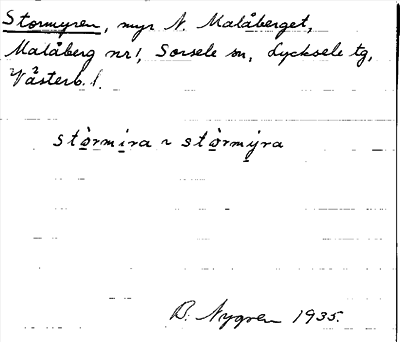 Stormyren, myr N. Malåberget,
Malåberg nr 1, Sorsele sn, Lycksele tg,
Västerb. l.
stòrmira ~ stòrmýra
B. Nygren 1935.